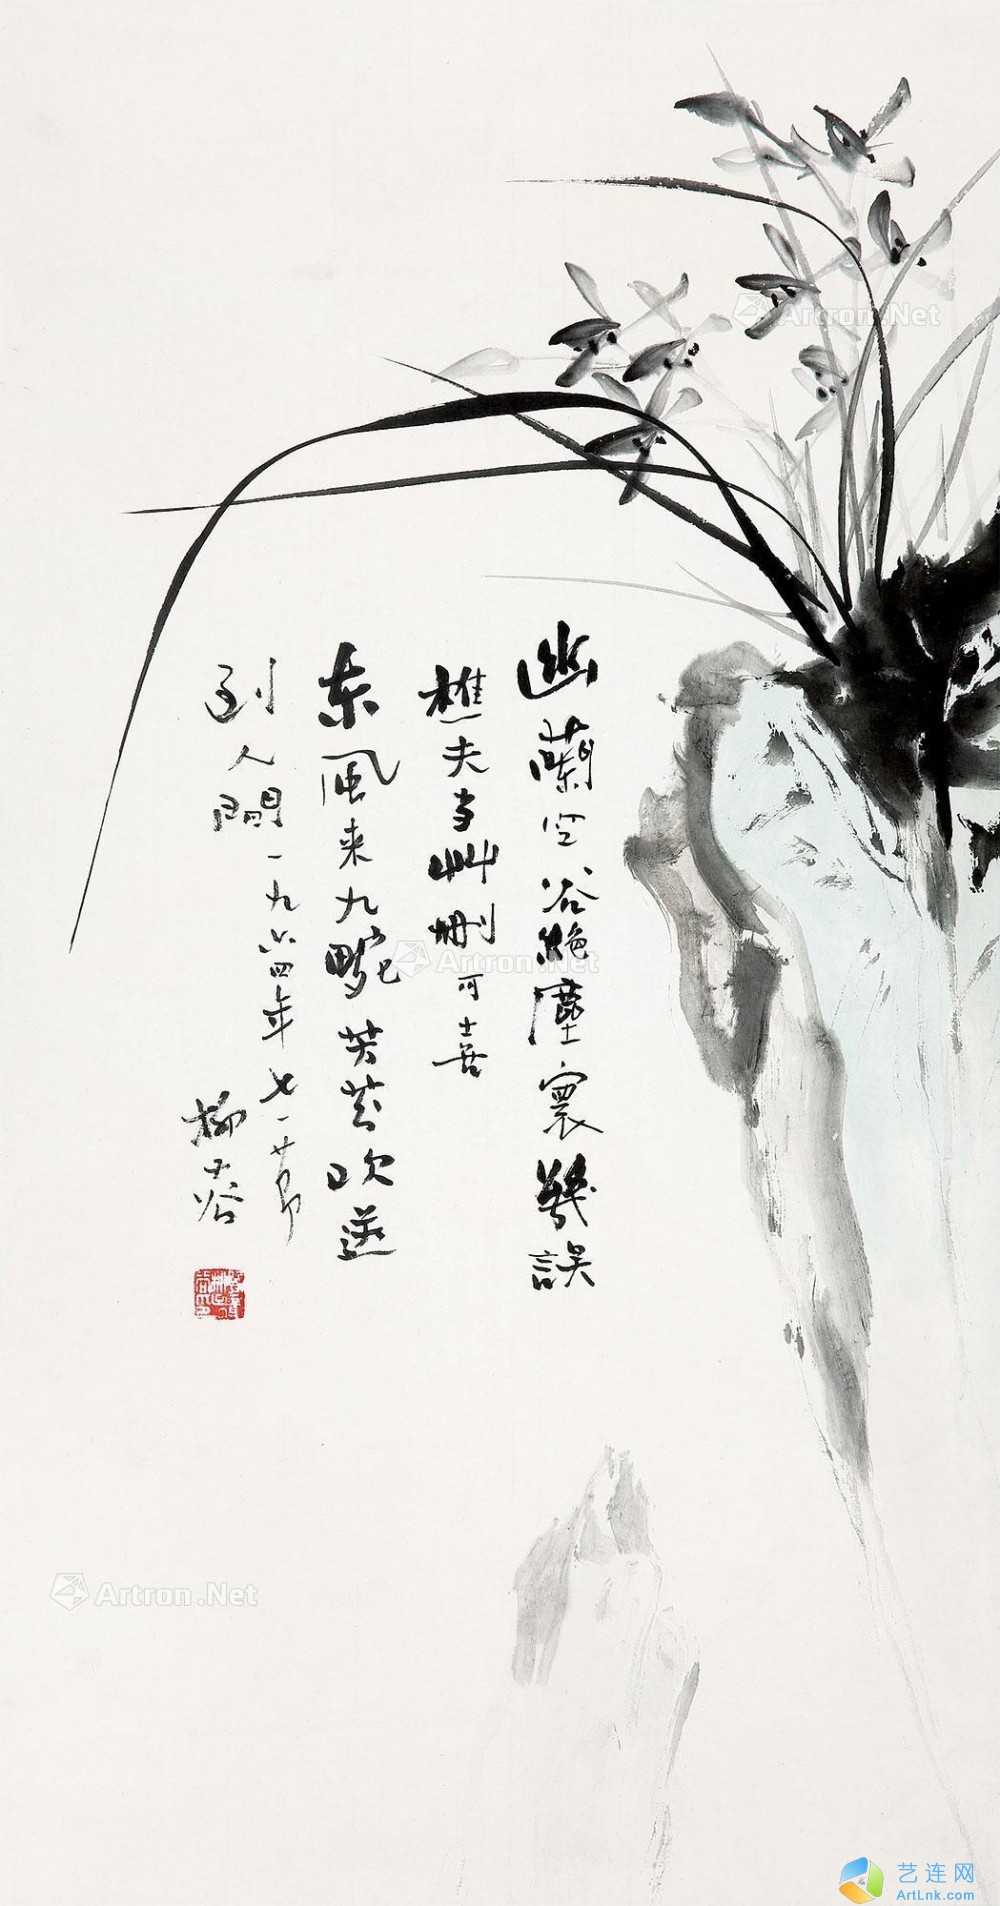 幽蘭空谷絕塵寰幾誤
樵夫当艸删可喜
东風来九畹芬芳吹送
到人間一九六四年七一节
柳子谷
Artron.Net
Artron.Net
Artron.Net
艺连网
ArtLnk.com